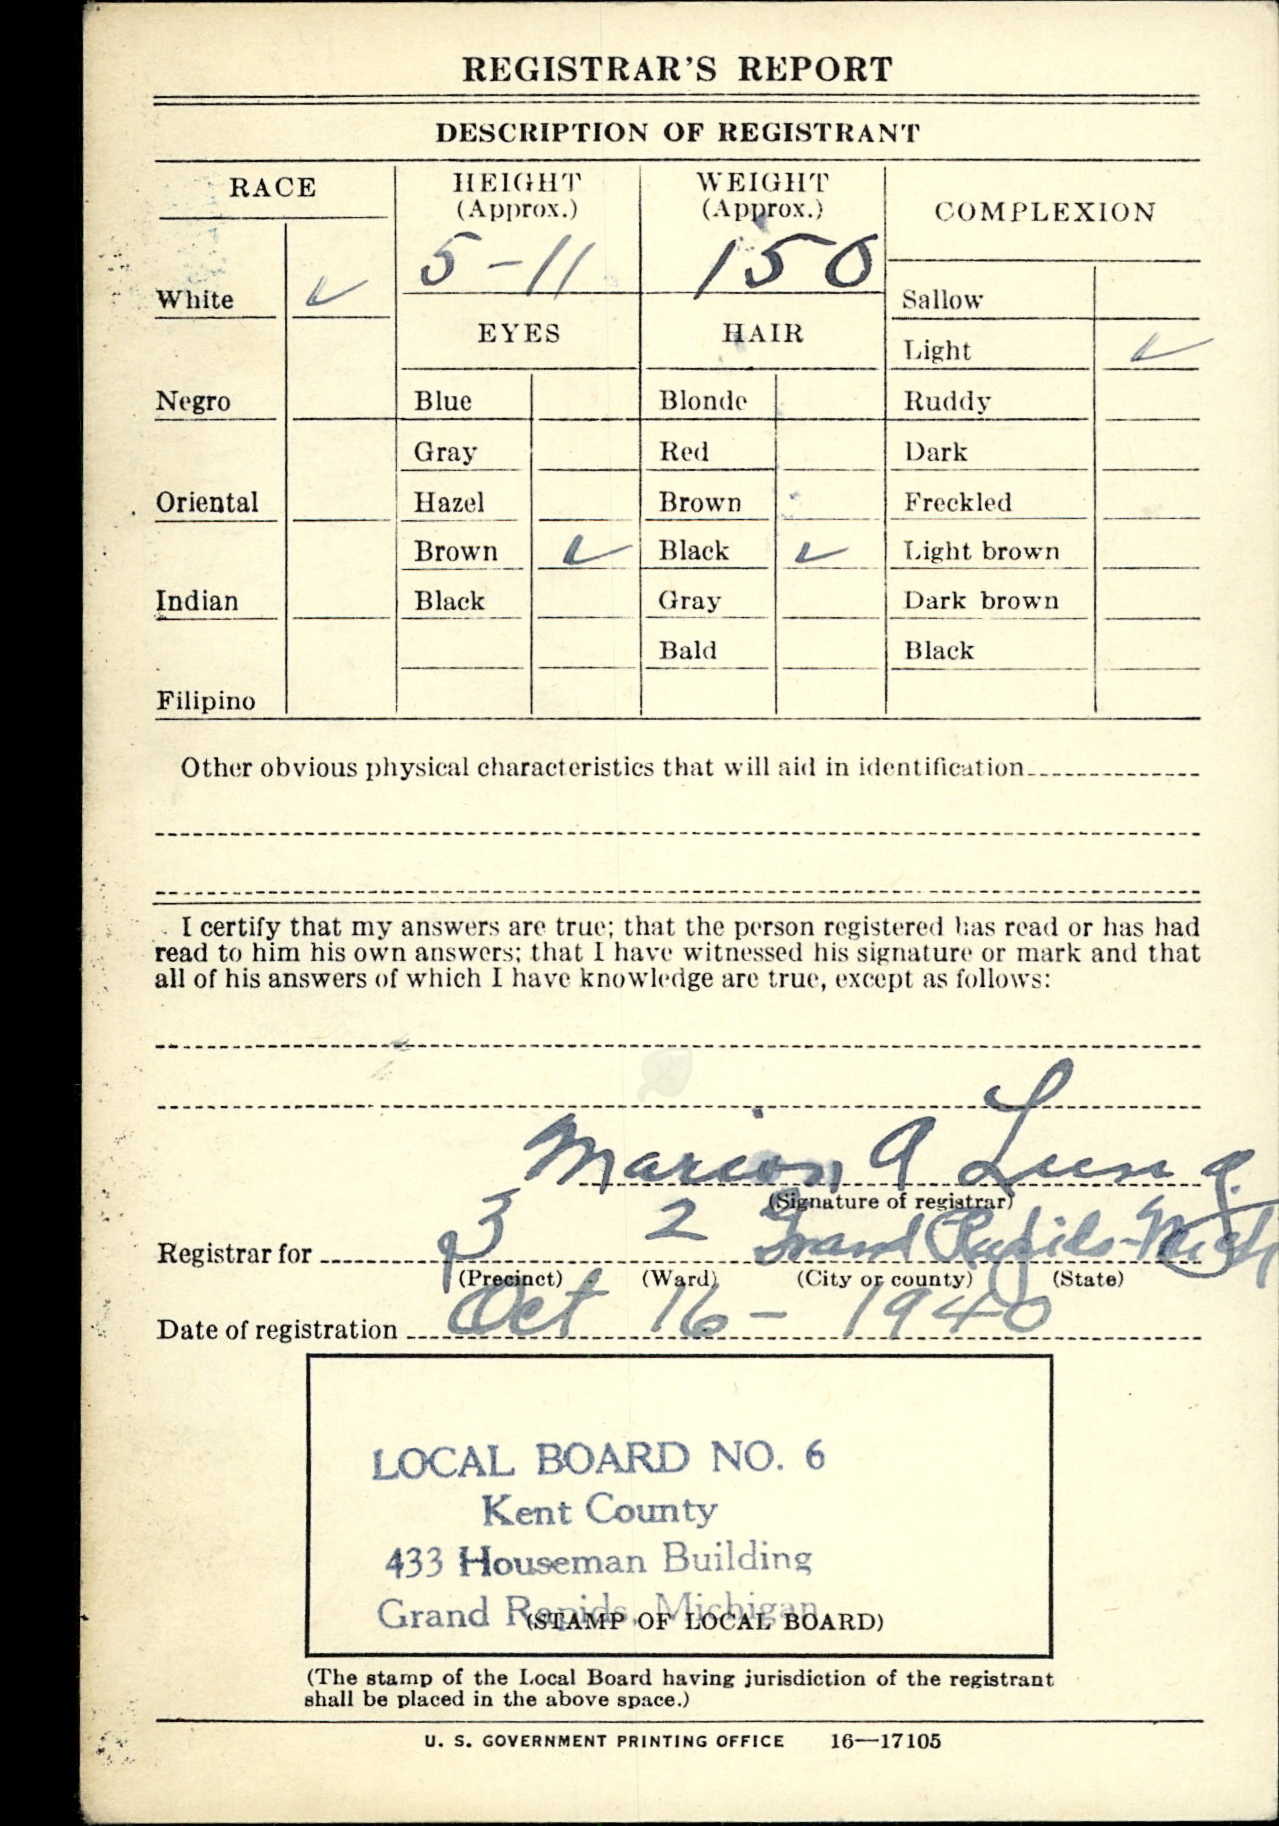 REGISTRAR'S REPORT
DESCRIPTION OF REGISTRANT
RACE
HEIGHT
(Approx.)
WEIGHT
(Approx.)
COMPLEXION
5-11
150
White ✓
Sallow
EYES
HAIR
Light ✓
Negro
Blue
Blonde
Ruddy
Gray
Red
Dark
Oriental
Hazel
Brown
Freckled
Brown ✓
Black ✓
Light brown
Indian
Black
Gray
Dark brown
Bald
Black
Filipino
Other obvious physical characteristics that will aid in identification
I certify that my answers are true; that the person registered has read or has had
read to him his own answers; that I have witnessed his signature or mark and that
all of his answers of which I have knowledge are true, except as follows:
Marion A
(Signature of registrar)
Registrar for 3 2 Grand Rapids-Mich
(Precinct) (Ward) (City or county) (State)
Date of registration Oct 16-1940
LOCAL BOARD NO. 6
Kent County
433 Houseman Building
Grand Rapids, Michigan
(STAMP OF LOCAL BOARD)
(The stamp of the Local Board having jurisdiction of the registrant
shall be placed in the above space.)
U. S. GOVERNMENT PRINTING OFFICE 16—17105